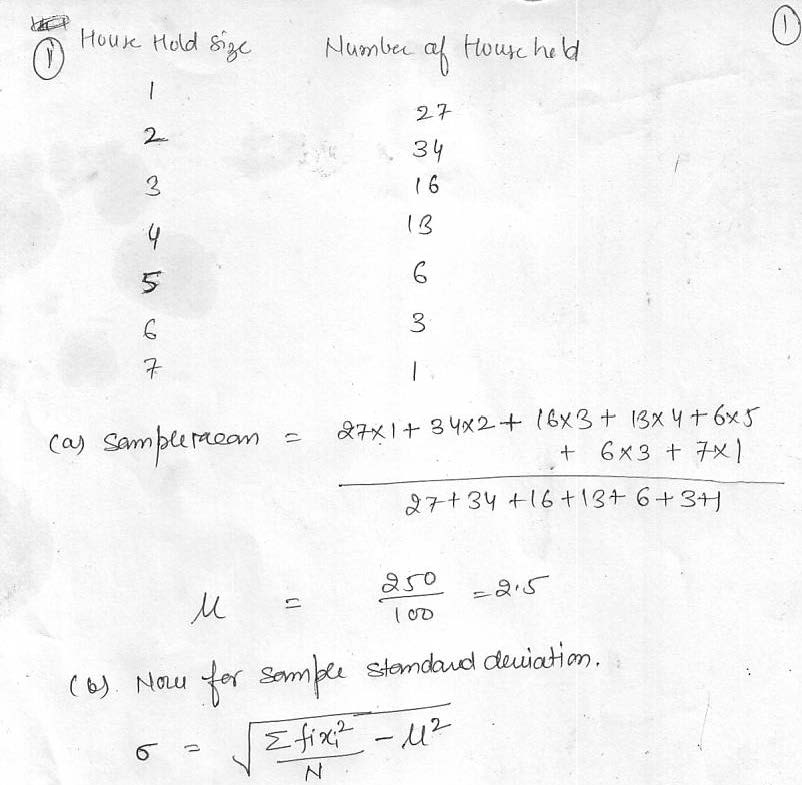 ①
① House Hold Size Number of Household
1 27
2 34
3 16
4 13
5 6
6 3
7 1
(a) Sample mean = 27×1 + 34×2 + 16×3 + 13×4 + 6×5
+ 6×3 + 7×1
27+34+16+13+6+3+1
μ = 250/100 = 2.5
(b). Now for sample standard deviation.
σ = √(Σfixi²/N - μ²)